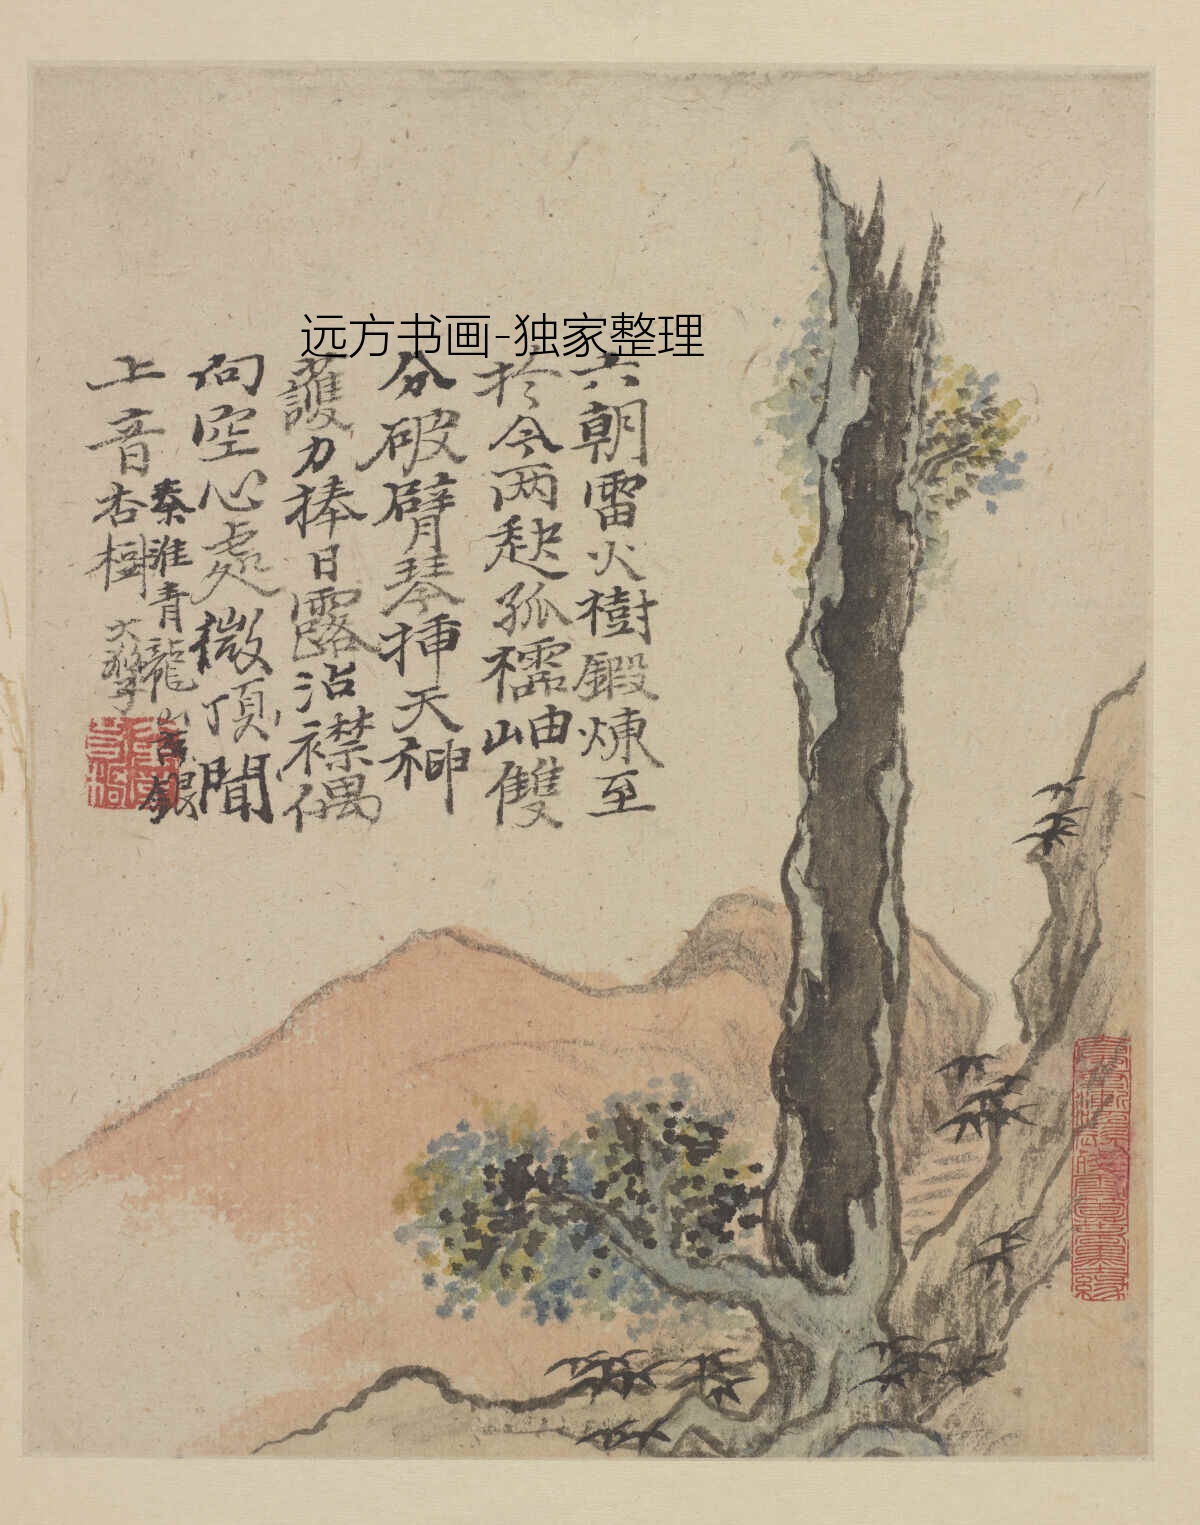 远方书画-独家整理
六朝雷火樹鍛煉至
於今兩趎孤襦岫雙
分破臂琴挿天神
護力捧日露沾襟偶
向空心處微頂聞
上音
秦淮青龍山古銀
杏樹
大滌子